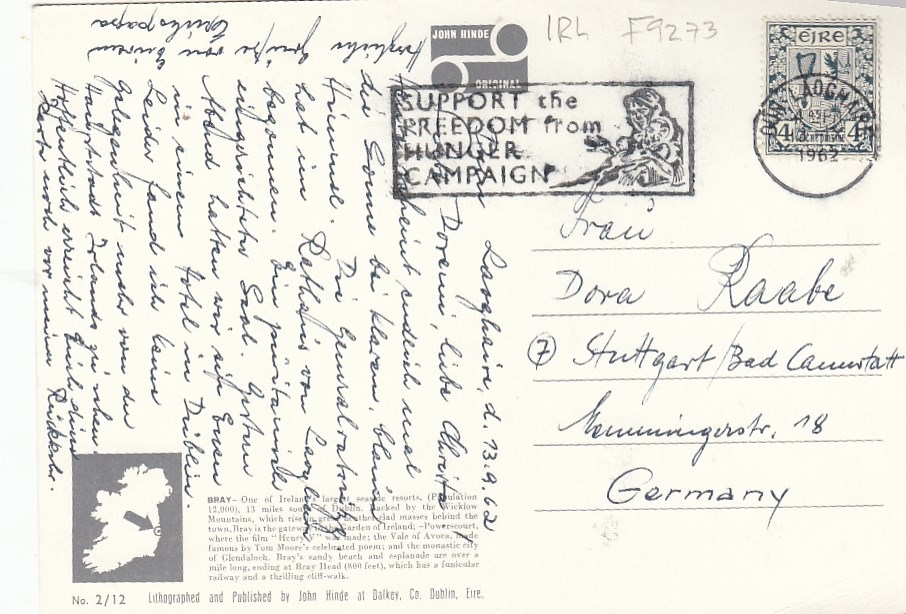 IRL F9273
JOHN HINDE
ORIGINAL
SUPPORT the
FREEDOM from
HUNGER
CAMPAIGN
éIRe
DÚN LAOGHAIRE
1962
4 4
Laoghaire, d. 13.9.62
Doraini, liebe Christa
scheint endlich mal
die Sonne bei klarem, blauen
Himmel. Die Generalversammlung
hat im Rathaus von
begonnen. Ein
Saal. Gestern
Abend hatten wir ein Essen
in einem Hotel in Dublin.
Leider fand ich keine
Gelegenheit mehr von der
Hauptstadt Irlands zu sehen.
Hoffentlich erreicht Euch diese
Karte noch vor meiner Rückkehr.
Herzliche Grüße von Eurem
Frau
Dora Raabe
7 Stuttgart/Bad Cannstatt
Memmingerstr. 18
Germany
BRAY—One of Ireland's largest seaside resorts, (Population
12,000), 13 miles south of Dublin. Backed by the Wicklow
Mountains, which rise in great heather clad masses behind the
town, Bray is the gateway to the Garden of Ireland;—Powerscourt,
where the film "Henry V" was made; the Vale of Avoca, made
famous by Tom Moore's celebrated poem; and the monastic city
of Glendaloch. Bray's sandy beach and esplanade are over a
mile long, ending at Bray Head (800 feet), which has a funicular
railway and a thrilling cliff-walk.
No. 2/12 Lithographed and Published by John Hinde at Dalkey, Co. Dublin, Eire.